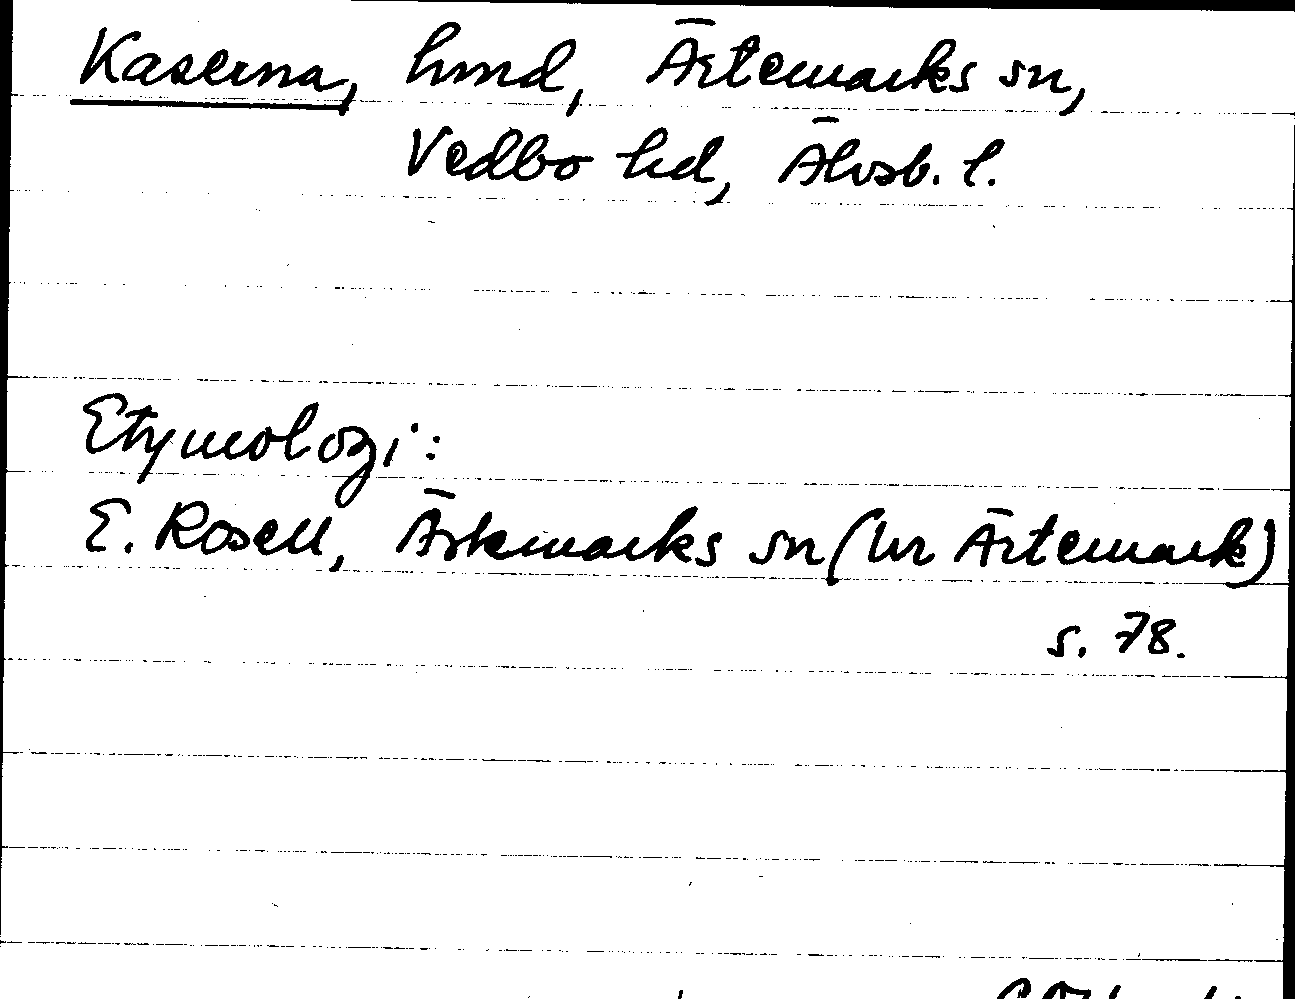 Kaserna, hmd, Ärtemarks sn,
Vedbo hd, Älvsb. l.
Etymologi:
E. Rosell, Ärtemarks sn (hr Ärtemark)
s. 78.